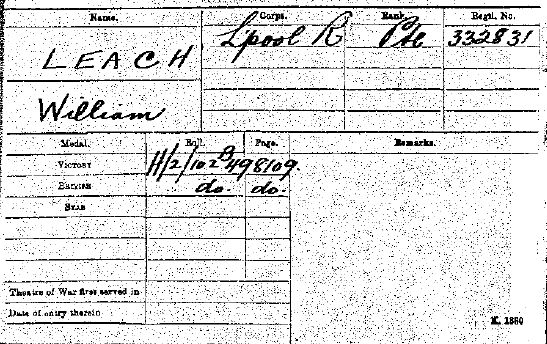 Name. Corps. Rank. Regtl. No.
LEACH L'pool R Pte 332831
William
Medal. Roll. Page. Remarks.
VICTORY H/2/102B49 8109.
BRITISH do. do.
STAR
Theatre of War first served in
Date of entry therein
K. 1380